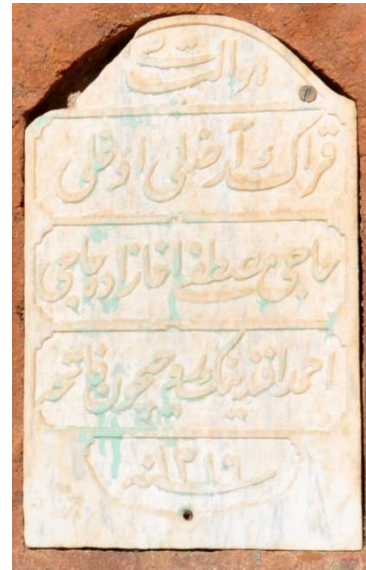 هوالباقی
قراك آرضلی اوغلی
حاجی مصطفا اغازاده حاجی
احمد افندینك روحیچون فاتحه
سنه ١٣١٩